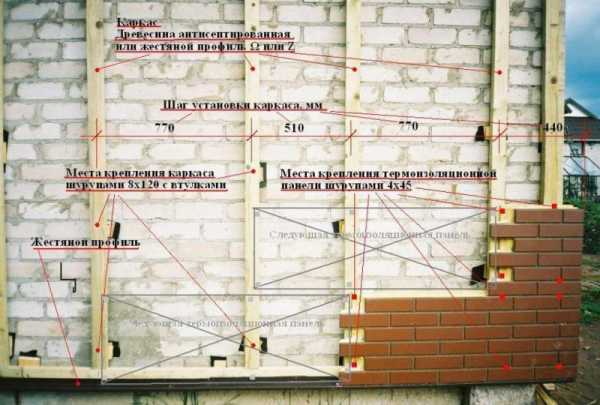 Каркас
Древесина антисептированная
или жестяной профиль Ω или Z
Шаг установки каркаса, мм
770
510
770
440
Места крепления каркаса
шурупами 8х120 с втулками
Места крепления термоизоляционной
панели шурупами 4х45
Жестяной профиль
Следующая термоизоляционная панель
термоизоляционная панель